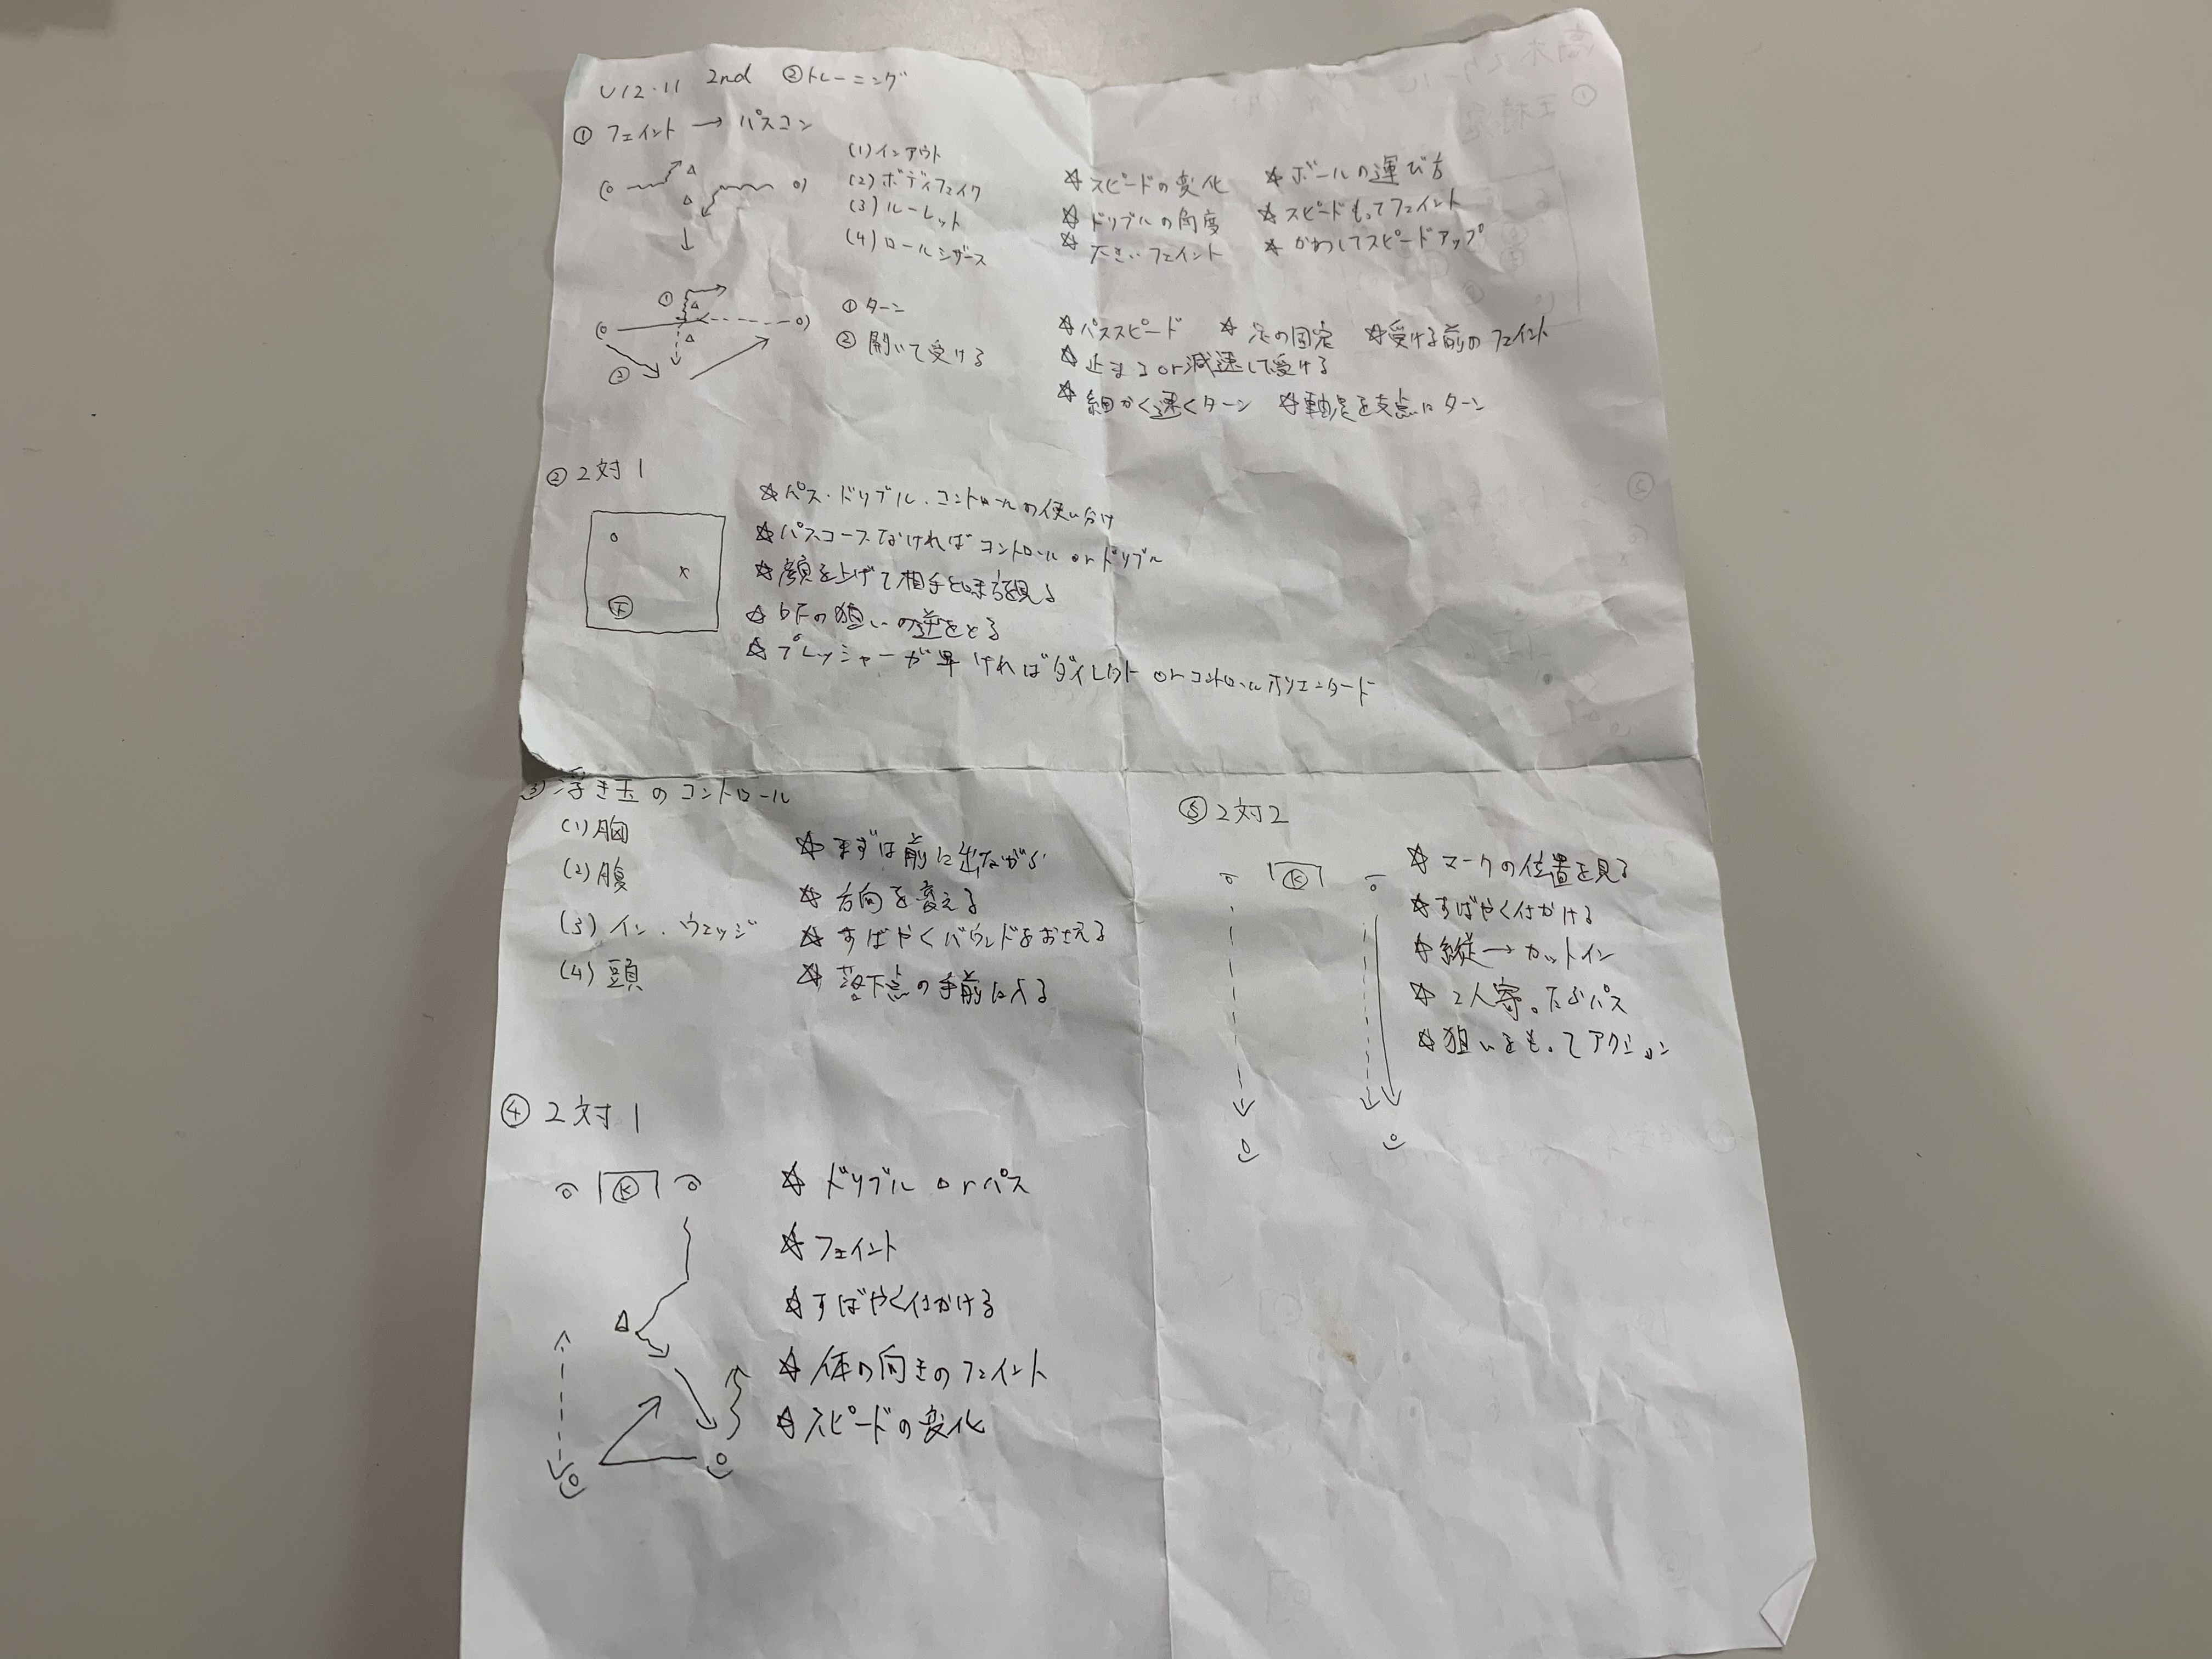 U12・11 2nd ②トレーニング
① フェイント → パスコン
(1) インアウト
(2) ボディフェイク
(3) ルーレット
(4) ロールシザース
☆ スピードの変化 ☆ ボールの運び方
☆ ドリブルの角度 ☆ スピードもってフェイント
☆ 大きいフェイント ☆ かわしてスピードアップ
①
②
① ターン
② 開いて受ける
☆ パススピード ☆ 足の固定 ☆ 受ける前のフェイント
☆ 止まるor減速して受ける
☆ 細かく速くターン ☆ 軸足を支点にターン
② 2対1
☆ パス・ドリブル・コントロールの使い分け
☆ パスコースなければコントロール or ドリブル
☆ 顔を上げて相手と味方を見る
☆ DFの狙いの逆をとる
☆ プレッシャーが早ければダイレクト or コントロールオリエンタード
③ 浮き玉のコントロール
(1) 胸
(2) 腹
(3) イン・ウェッジ
(4) 頭
☆ まずは前に出ながら
☆ 方向を変える
☆ すばやくバウンドをおさえる
☆ 落下点の手前に入る
④ 2対1
K
☆ ドリブル or パス
☆ フェイント
☆ すばやく仕かける
☆ 体の向きのフェイント
☆ スピードの変化
⑤ 2対2
K
☆ マークの位置を見る
☆ すばやく仕かける
☆ 縦→カットイン
☆ 2人寄ったらパス
☆ 狙いをもってアクション